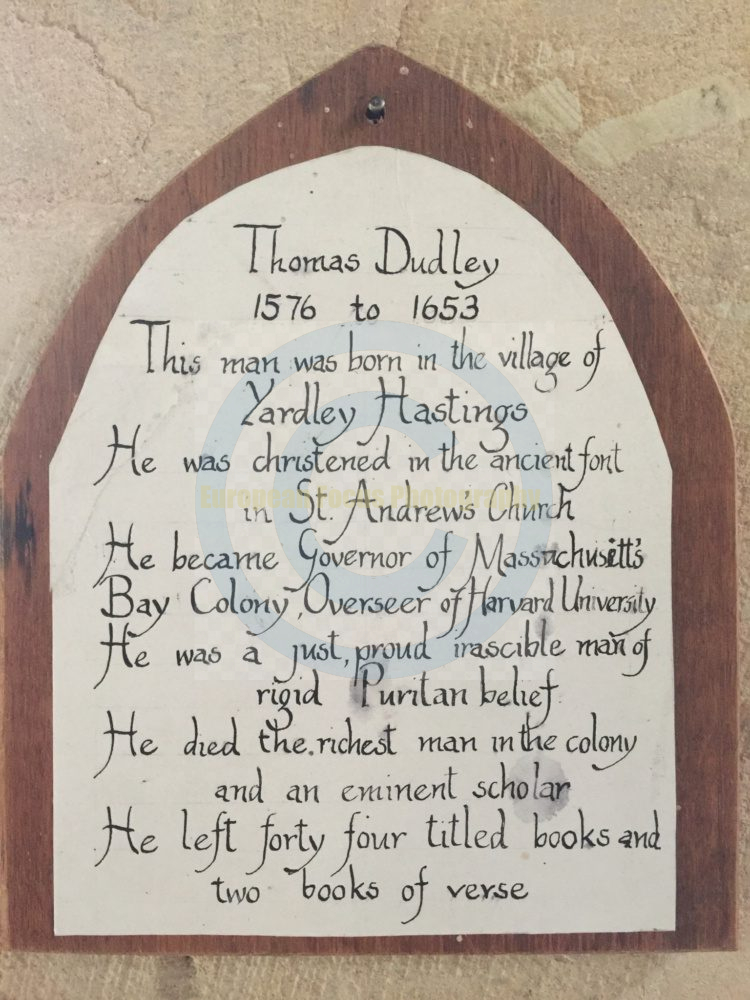 Thomas Dudley
1576 to 1653
This man was born in the village of
Yardley Hastings
He was christened in the ancient font
in St. Andrew's Church
He became Governor of Massachusitt's
Bay Colony, Overseer of Harvard University
He was a just, proud irascible man of
rigid Puritan belief
He died the richest man in the colony
and an eminent scholar
He left forty four titled books and
two books of verse
European Focus Photography